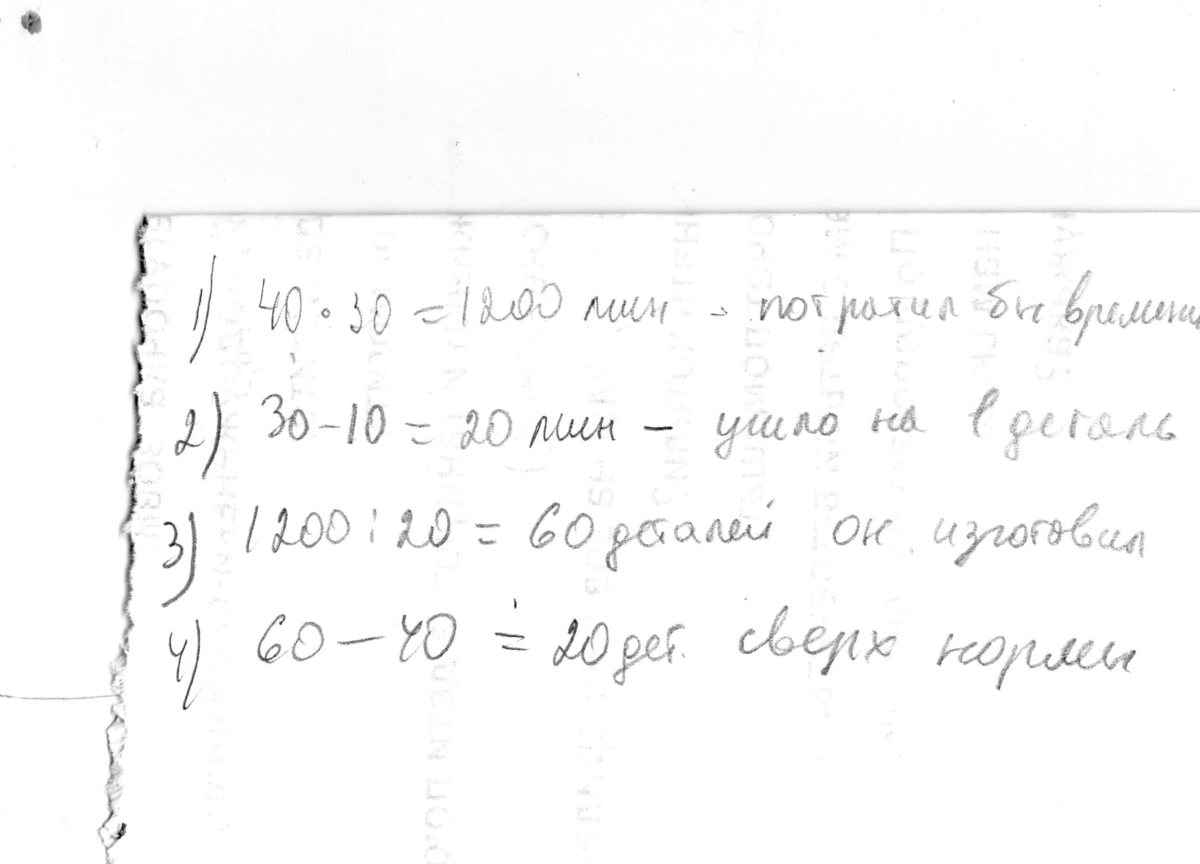 1) 40 • 30 = 1200 мин - потратил бы времени
2) 30 - 10 = 20 мин - ушло на 1 деталь
3) 1200 : 20 = 60 деталей он изготовил
4) 60 - 40 = 20 дет. сверх нормы